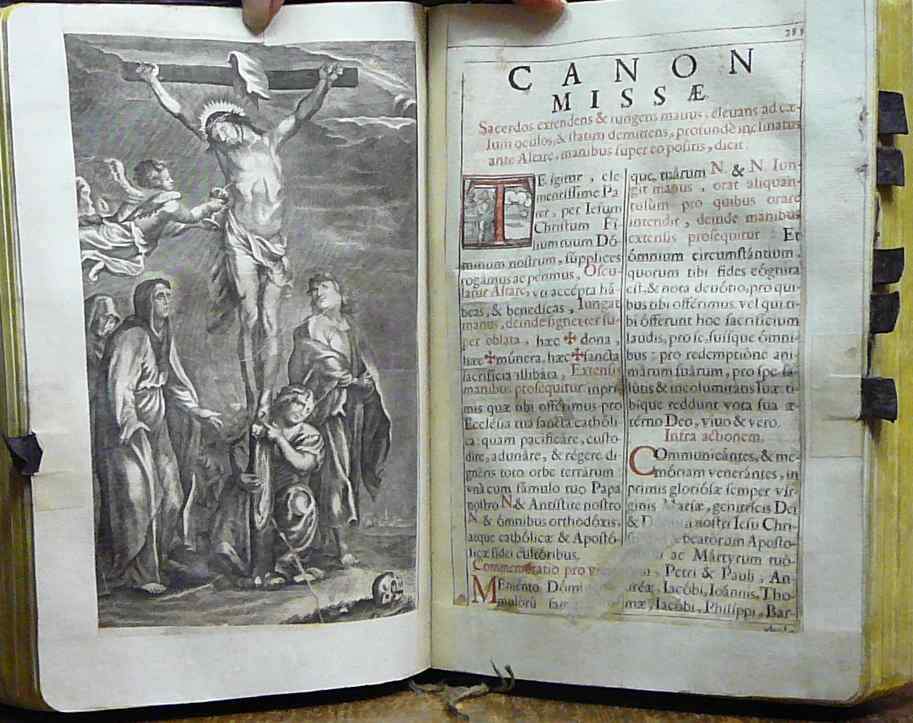 283
CANON
MISSÆ
Sacerdos extendens & iungens manus, eleuans ad cæ-
lum oculos, & statim demittens, profundè inclinatus
ante Altare, manibus super eo positis, dicit.
TE igitur, cle
mentissime Pa
ter, per Iesum
Christum Fi
lium tuum Dó
minum nostrum, supplices
rogámus ac pétimus, Oscu-
latur Altare, vti accépta há
beas, & benedícas, Iungit
manus, deinde signat ter su-
per oblata, hæc ✠ dona,
hæc ✠ múnera, hæc ✠ sancta
sacrifícia illibáta, Extensis
manibus prosequitur inprí
mis quæ tibi offérimus pro
Ecclésia tua sancta cathóli
ca: quam pacificáre, custo
díre, adunáre, & régere di
gnéris toto orbe terrárum
vnà cum fámulo tuo Papa
nostro N & Antístite nostro
N & ómnibus orthodóxis,
atque cathólicæ & Apostó-
licæ fidei cultóribus.
Commemoratio pro
MEménto Dómi
mulorũ
que tuárum N. & N Iun-
git manus, orat aliquan-
tulum pro quibus orare
intendit, deinde manibus
extensis prosequitur: Et
ómnium circumstántium,
quorum tibi fides cógnita
est, & nota deuótio, pro qui-
bus tibi offérimus, vel qui ti-
bi ófferunt hoc sacrifícium
laudis, pro se, suísque ómni-
bus: pro redemptióne ani-
márum suárum, pro spe sa-
lútis & incolumitátis suæ ti-
bíque reddunt vota sua æ-
térno Deo, viuo & vero.
Infra actionem.
COmmunicántes, & me-
móriam venerántes, in
primis gloriósæ semper vír-
ginis Maríæ, genitrícis Dei
& nostri Iesu Chri-
beatórum Aposto-
ac Mártyrum tuó-
Petri & Pauli, An-
Iacóbi, Ioánnis, Tho-
mæ, Iacóbi, Philíppi, Bar-